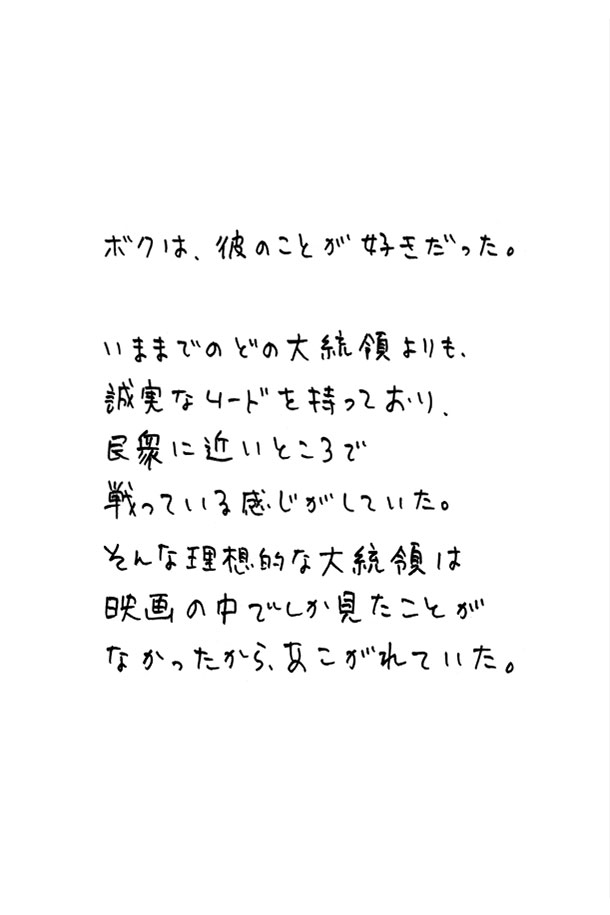 ボクは、彼のことが好きだった。
いままでのどの大統領よりも、
誠実なムードを持っており、
民衆に近いところで
戦っている感じがしていた。
そんな理想的な大統領は
映画の中でしか見たことが
なかったから、あこがれていた。